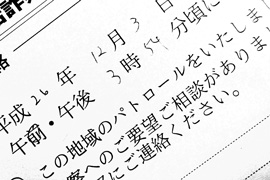 平成26年12月3日
午前・午後3時54分頃に
この地域のパトロールをいたしま
察へのご要望ご相談がありま
にご連絡ください。